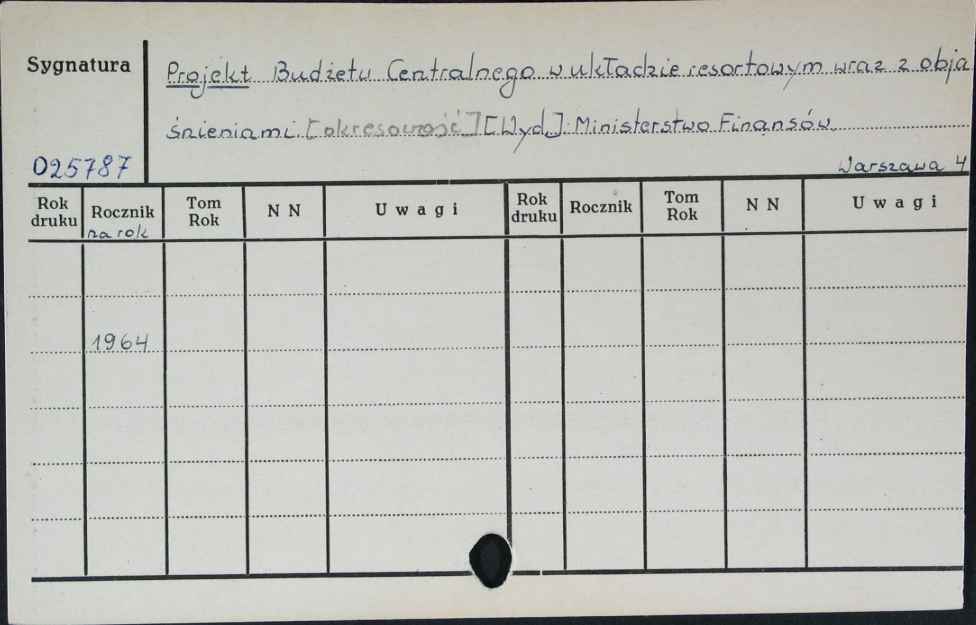 Sygnatura
Projekt Budżetu Centralnego w układzie resortowym wraz z obja
śnieniami. [okresowość] [Wyd.]: Ministerstwo Finansów
025787
Warszawa 4
Rok druku Rocznik Tom Rok N N Uwagi Rok druku Rocznik Tom Rok N N Uwagi
na rok
1964